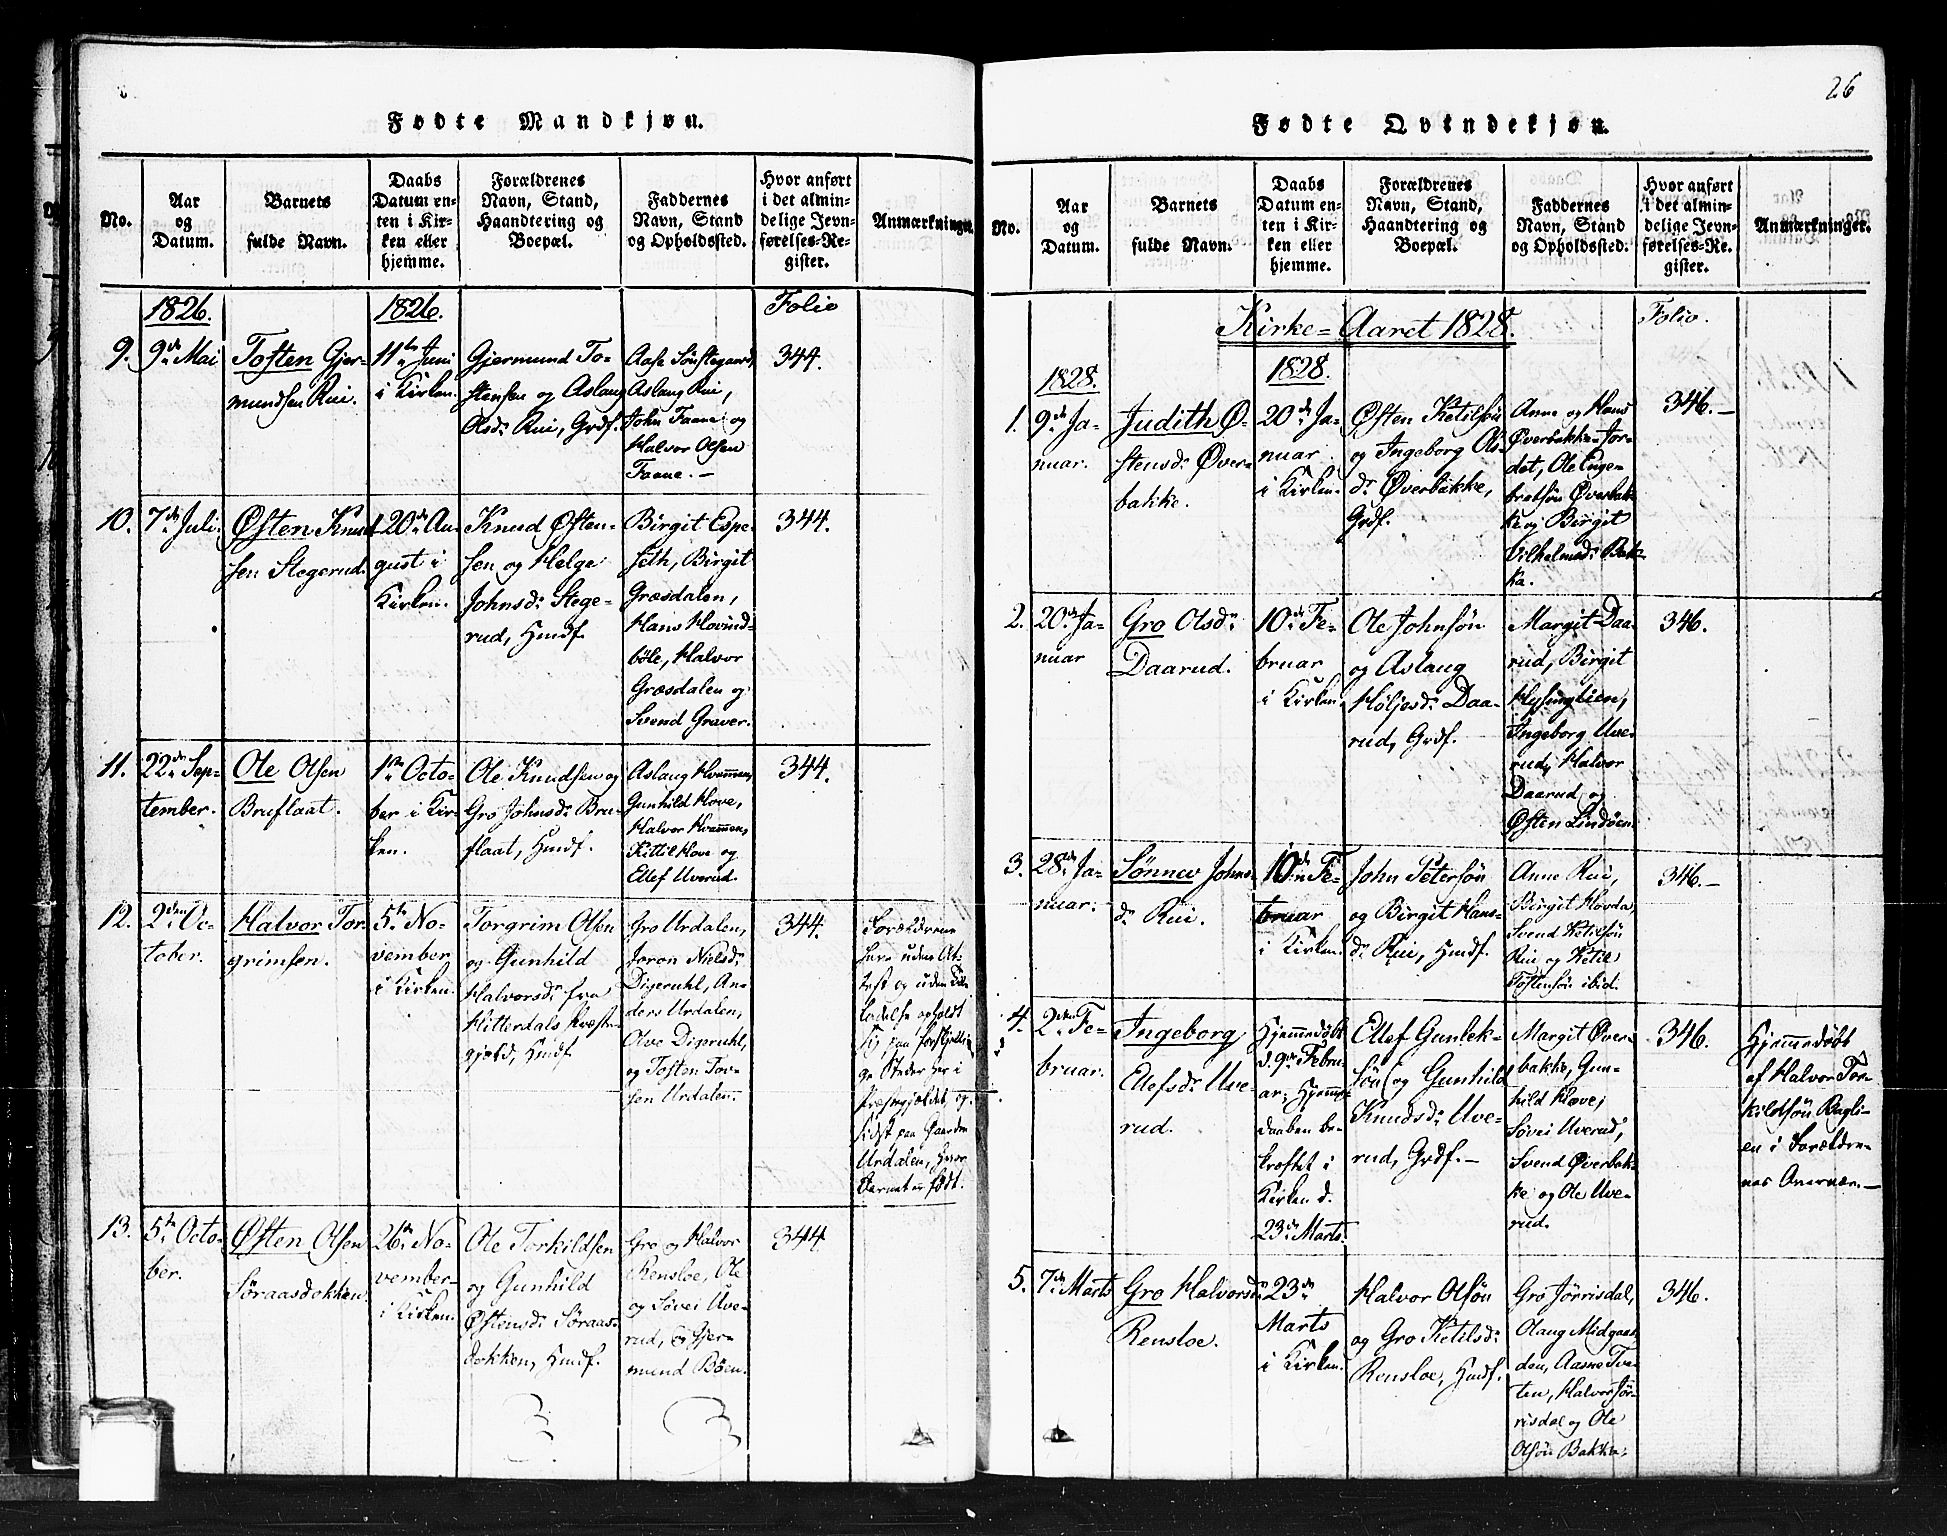 Fødte Mandkjøn.
No.
Aar
og
Datum.
Barnets
fulde Navn.
Daabs
Datum en-
ten i Kir-
ken eller
hjemme.
Forældrenes
Navn, Stand,
Haandtering og
Boepæl.
Faddernes
Navn, Stand
og Opholdssted.
Hvor anført
i det almin-
delige Jevn-
førelses-Re-
gister.
Anmærkninger.
1826.
1826.
Folio
9.
9de Mai
Tosten Gjer-
mundsen Rui.
11te Juni
i Kirken.
Gjermund To-
stensen og Aslaug
Olsdr Rui, Grdf.
Aase Sønstegaard,
Aslaug Rui,
John Faane og
Halvor Olsen
Faane. -
344.
10.
7de Juli.
Østen Knud-
sen Stegerud.
20de Au-
gust i
Kirken.
Knud Østen-
sen og Helge
Johnsdr Stege-
rud, Hmdf.
Birgit Espe-
seth, Birgit
Græsdalen,
Hans Hovind-
bøle, Halvor
Græsdalen og
Svend Graver.
344.
11.
22de Sep-
tember.
Ole Olsen
Bruflaat.
1ste Octo-
ber i Kir-
ken.
Ole Knudsen og
Gro Johnsdr Bru-
flaat, Hmdf.
Aslaug Kvammen,
Gunhild Hove,
Halvor Kvammen,
Kittil Hove og
Ellef Uverud.
344.
12.
2den Oc-
tober.
Halvor Tor-
grimsen.
5te No-
vember
i Kirken.
Torgrim Olsen
og Gunhild
Halvorsdr fra
Hitterdals Præste-
gjæld, Hmdf.
Gro Urdalen,
Joron Nielsdr
Digeruhl, An-
ders Urdalen,
Olve Digeruhl,
og Tosten Tov-
sen Urdalen.
344.
Forældrene
have uden At-
test og uden Til-
ladelse opholdt
sig paa forskjelli-
ge Steder her i
Præstegjældet, og
sidst paa Gaarden
Urdalen, hvor
Barnet er født.
13.
5te Octo-
ber.
Østen Olsen
Søraasdokken.
26de No-
vember
i Kirken.
Ole Torkildsen
og Gunhild
Østensdr Søraas-
dokken, Hmdf.
Gro og Halvor
Rensloe, Ole
og Søvei Uve-
rud, og Gjer-
mund Bøen.
344.
26
Fødte Qvindekjøn.
No.
Aar
og
Datum.
Barnets
fulde Navn.
Daabs
Datum en-
ten i Kir-
ken eller
hjemme.
Forældrenes
Navn, Stand,
Haandtering og
Boepæl.
Faddernes
Navn, Stand
og Opholdssted.
Hvor anført
i det almin-
delige Jevn-
førelses-Re-
gister.
Anmærkninger.
Kirke-Aaret 1828.
Folio.
1828.
1828.
1.
9de Ja-
nuar.
Judith Ø-
stensdr Øver-
bakke.
20de Ja-
nuar
i Kirken.
Østen Ketilsøn
og Ingeborg Ols-
dr Øverbakke,
Grdf.
Anne og Hans
Øverbakke-Jor-
det, Ole Enge-
bretsøn Øverbak-
ke og Birgit
Vilhelmsdr Bak-
ka.
346. -
2.
20de Ja-
nuar
Gro Olsdr
Daarud.
10de Fe-
bruar
i Kirken
Ole Johnsøn
og Aslaug
Høljesdr Daa-
rud, Grdf.
Margit Daa-
rud, Birgit
Hysinglien,
Ingeborg Uve-
rud, Halvor
Daarud og
Østen Lindøen.
346.
3.
28de Ja-
nuar.
Sønnev Johns-
dr Rui.
10de Fe-
bruar
i Kirken.
John Petersøn
og Birgit Hans-
dr Rui, Hmdf.
Anne Rui,
Birgit Hovda,
Svend Ketilsøn
Rui og Ketil
Tostensøn ibid.
346. -
4.
2den Fe-
bruar.
Ingeborg
Elefsdr Uve-
rud.
Hjemmedøbt
d. 9de Febru-
ar; Hjemme-
daaben be-
kræftet i
Kirken d.
23de Marts.
Ellef Gunlek-
søn og Gunhild
Knudsdr Uve-
rud, Grdf. -
Margit Øver-
bakke, Gun-
hild Hove,
Søvei Uverud,
Svend Øverbak-
ke og Ole Uve-
rud.
346.
Hjemmedøbt
af Halvor Tor-
kildsøn Bagli-
en i Forældre-
nes Overvær. -
5.
7de Marts
Gro Halvorsdr
Rensloe.
23de
Marts
i Kirken.
Halvor Olsøn
og Gro Ketilsdr
Rensloe, Hmdf.
Gro Jørrisdal,
Olaug Midgaar-
den, Aasne Tve-
ten, Halvor Jør-
risdal og Ole
Olsøn Bakke.
346.